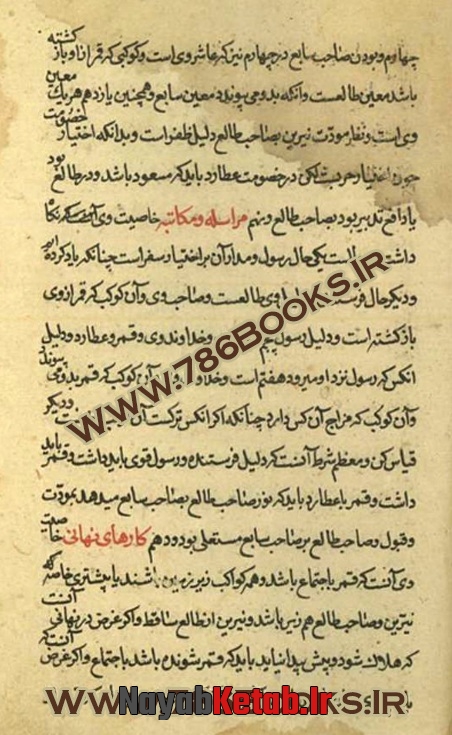 چهارم و بودن صاحب سابع در چهارم نیز که عاشر وی است و کوکبی که قمر ازو باز کشته
باشد معین طالعست و آنکه بدو می پیوندد معین سابع و همچنین یازدهم هر یک معین
وی است و نظر مودت نیرین بصاحب طالع دلیل ظفر است و بدانکه اختیار خصومت
چون اختیار حربست لکن در خصومت عطارد باید که مسعود باشد و در طالع بود
یا دافع تدبیر بود بصاحب طالع و نهم مراسله و مکاتبه خاصیت وی آنست که نکاه
داشته است یکی حال رسول و مدار آن بر اختیار سفر است چنانکه یاد کرده اید
و دیکر حال فرستنده وی طالعست و صاحب وی و آن کوکب که قمر از وی
باز کشته است و دلیل رسول نهم و خداوند وی و قمر و عطارد و دلیل
انکس که رسول نزد او میرود هفتم است و خداوند آن کوکب که قمر بدو می پیوندد
و آن کوکب که مزاج آن کس دارد چنانکه اکر انکس ترکست آن و دیکر
قیاس کن و معظم شرط آنست که دلیل فرستنده و رسول قوی باید داشت و قمر باید
داشت و قمر با عطارد باید که نور صاحب طالع بصاحب سابع میدهد بمودت
و قبول و صاحب طالع بر صاحب سابع مستعلی بود و دهم کارهای نهانی خاصیت
وی آنست که قمر باجتماع باشد و همه کواکب زیر زمین باشند یا بیشتری خاصه که
نیرین و صاحب طالع هم زیر باشد و نیرین از طالع ساقط و اکر غرض در نهانی آنست
که هلاک شود و پیش پیدا نیاید باید که قمر شونده باشد باجتماع و اکر غرض آنست که
WWW.786BOOKS.IR
WWW.786BOOKS.IR
NayabKetab.Ir